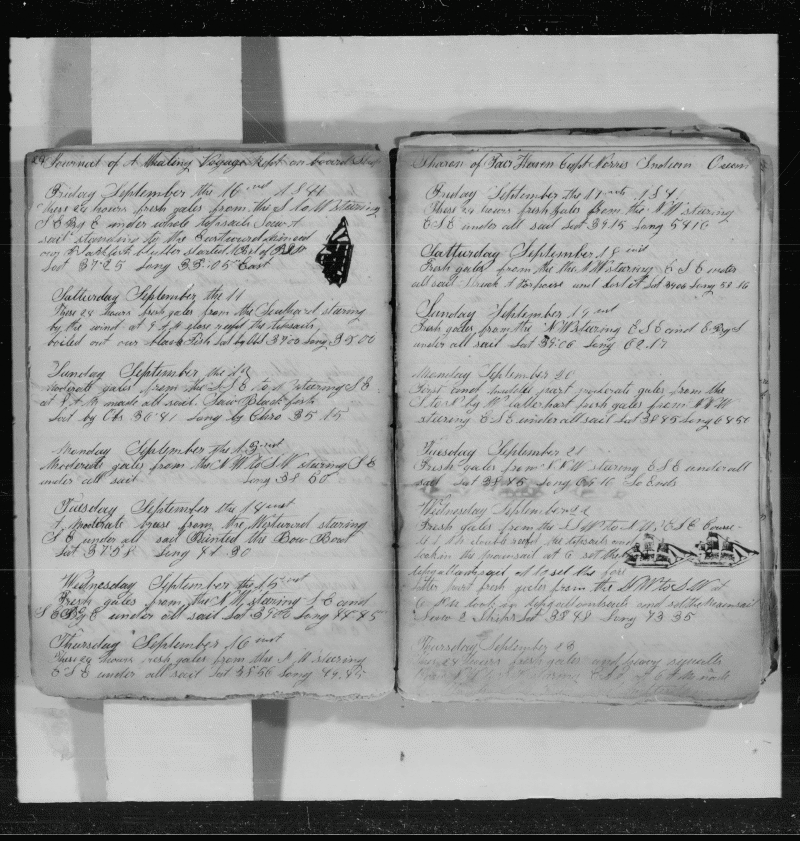 Journal of A Whaling Voyage kept on board Ship
Friday September the 10 inst 1841
These 24 hours fresh gales from the S to W staring
S E By E under whole topsails Saw A
sail standing to the Eastward skined
our Blackfish
Lat 37=25 Long 33=05 East
Satturday September the 11
These 24 hours fresh gales from the Southard staring
by the wind at 9 A M close reeft the topsails
boiled out our Black Fish Lat by Obs 37 00 Long 35=00
Sunday September the 12
Moderate gales from the S S E to staring S E
at 8 A M made all sail. Saw Blackfish
Lat by Obs 36"41 Long by Chro 35"15
Monday September the 13 inst
Moderate gales from the N W to S W staring S E
under all sail Long 38 50
Tuesday September the 14 inst
A Moderate brese from the Westward staring
S E under all sail Painted the Bow Boat
Lat 37"58 Long 41 30
Wednesday September the 15 inst
Fresh gales from the N W staring S E and
S E By E under all sail Lat Long 44"45
Thursday September 16 inst
These 24 hours fresh gales from the N W staring
E S E under all sail Lat 38 56 Long
Sharon of Fair Haven Capt Norris Indian Ocean
Friday September the 17 inst 1841
These 24 hours fresh gales from the N W staring
E S E under all sail Lat 39"15 Long 54 16
Satturday September 18 inst
Fresh gales from the the N W staring E S E under
all sail Struck A Porpoise and lost it Lat 39 06 Long 58.16
Sunday September 19 inst
Fresh gales from the N W staring E S E and E By S
under all sail Lat 39:06 Long 62.17
Monday September 20
First and middle part moderate gales from the
N to N by W latter part fresh gales from N N W
staring E S E under all sail Lat 38 45 Long 64 50
Tuesday September 21
Fresh gales from N N W staring E S E under all
sail Lat 38"45 Long So Ends
Wednesday September 22
Fresh gales from the N W to S W. E S E Course
at 4 A M double reeft the topsails and
took in the
topgallantsail at 10 set the fore
latter part fresh gales from the N W to S W at
took in topgallantsails and set the
Saw 2 Ships Lat 38"48 Long 73 35
Thursday September 23
These 24 hours fresh gales and heavy squalls